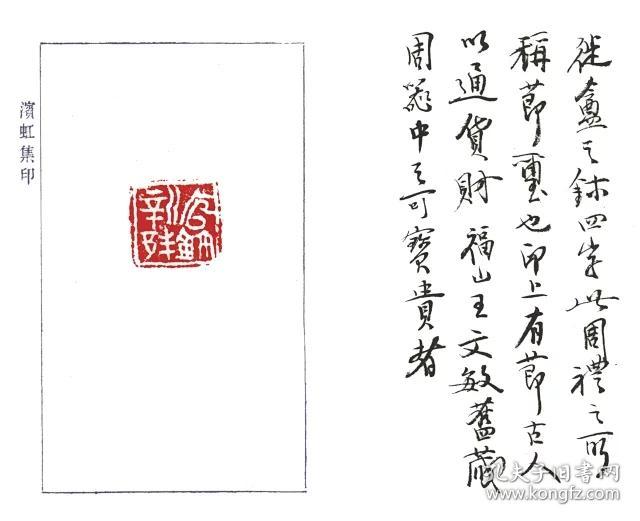 徙盧之鉨四字此周禮之所
稱節璽也印上有節古人
以通貨財福山王文敏舊藏
周器中之可寶貴者
濱虹集印
孔夫子旧书网
www.kongfz.com